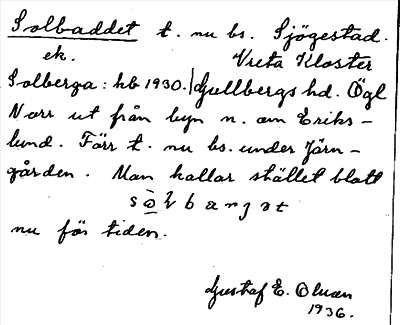 Solbaddet t. nu bs. Sjögestad.
ek. Vreta Kloster
Solberga: hb 1930. Gullbergs hd. Ögl
Norr ut från byn n. om Eriks-
lund. Förr t. nu bs. under Järn-
gården. Man kallar stället blott
nu för tiden.
Gustaf E. Olsson
1936.